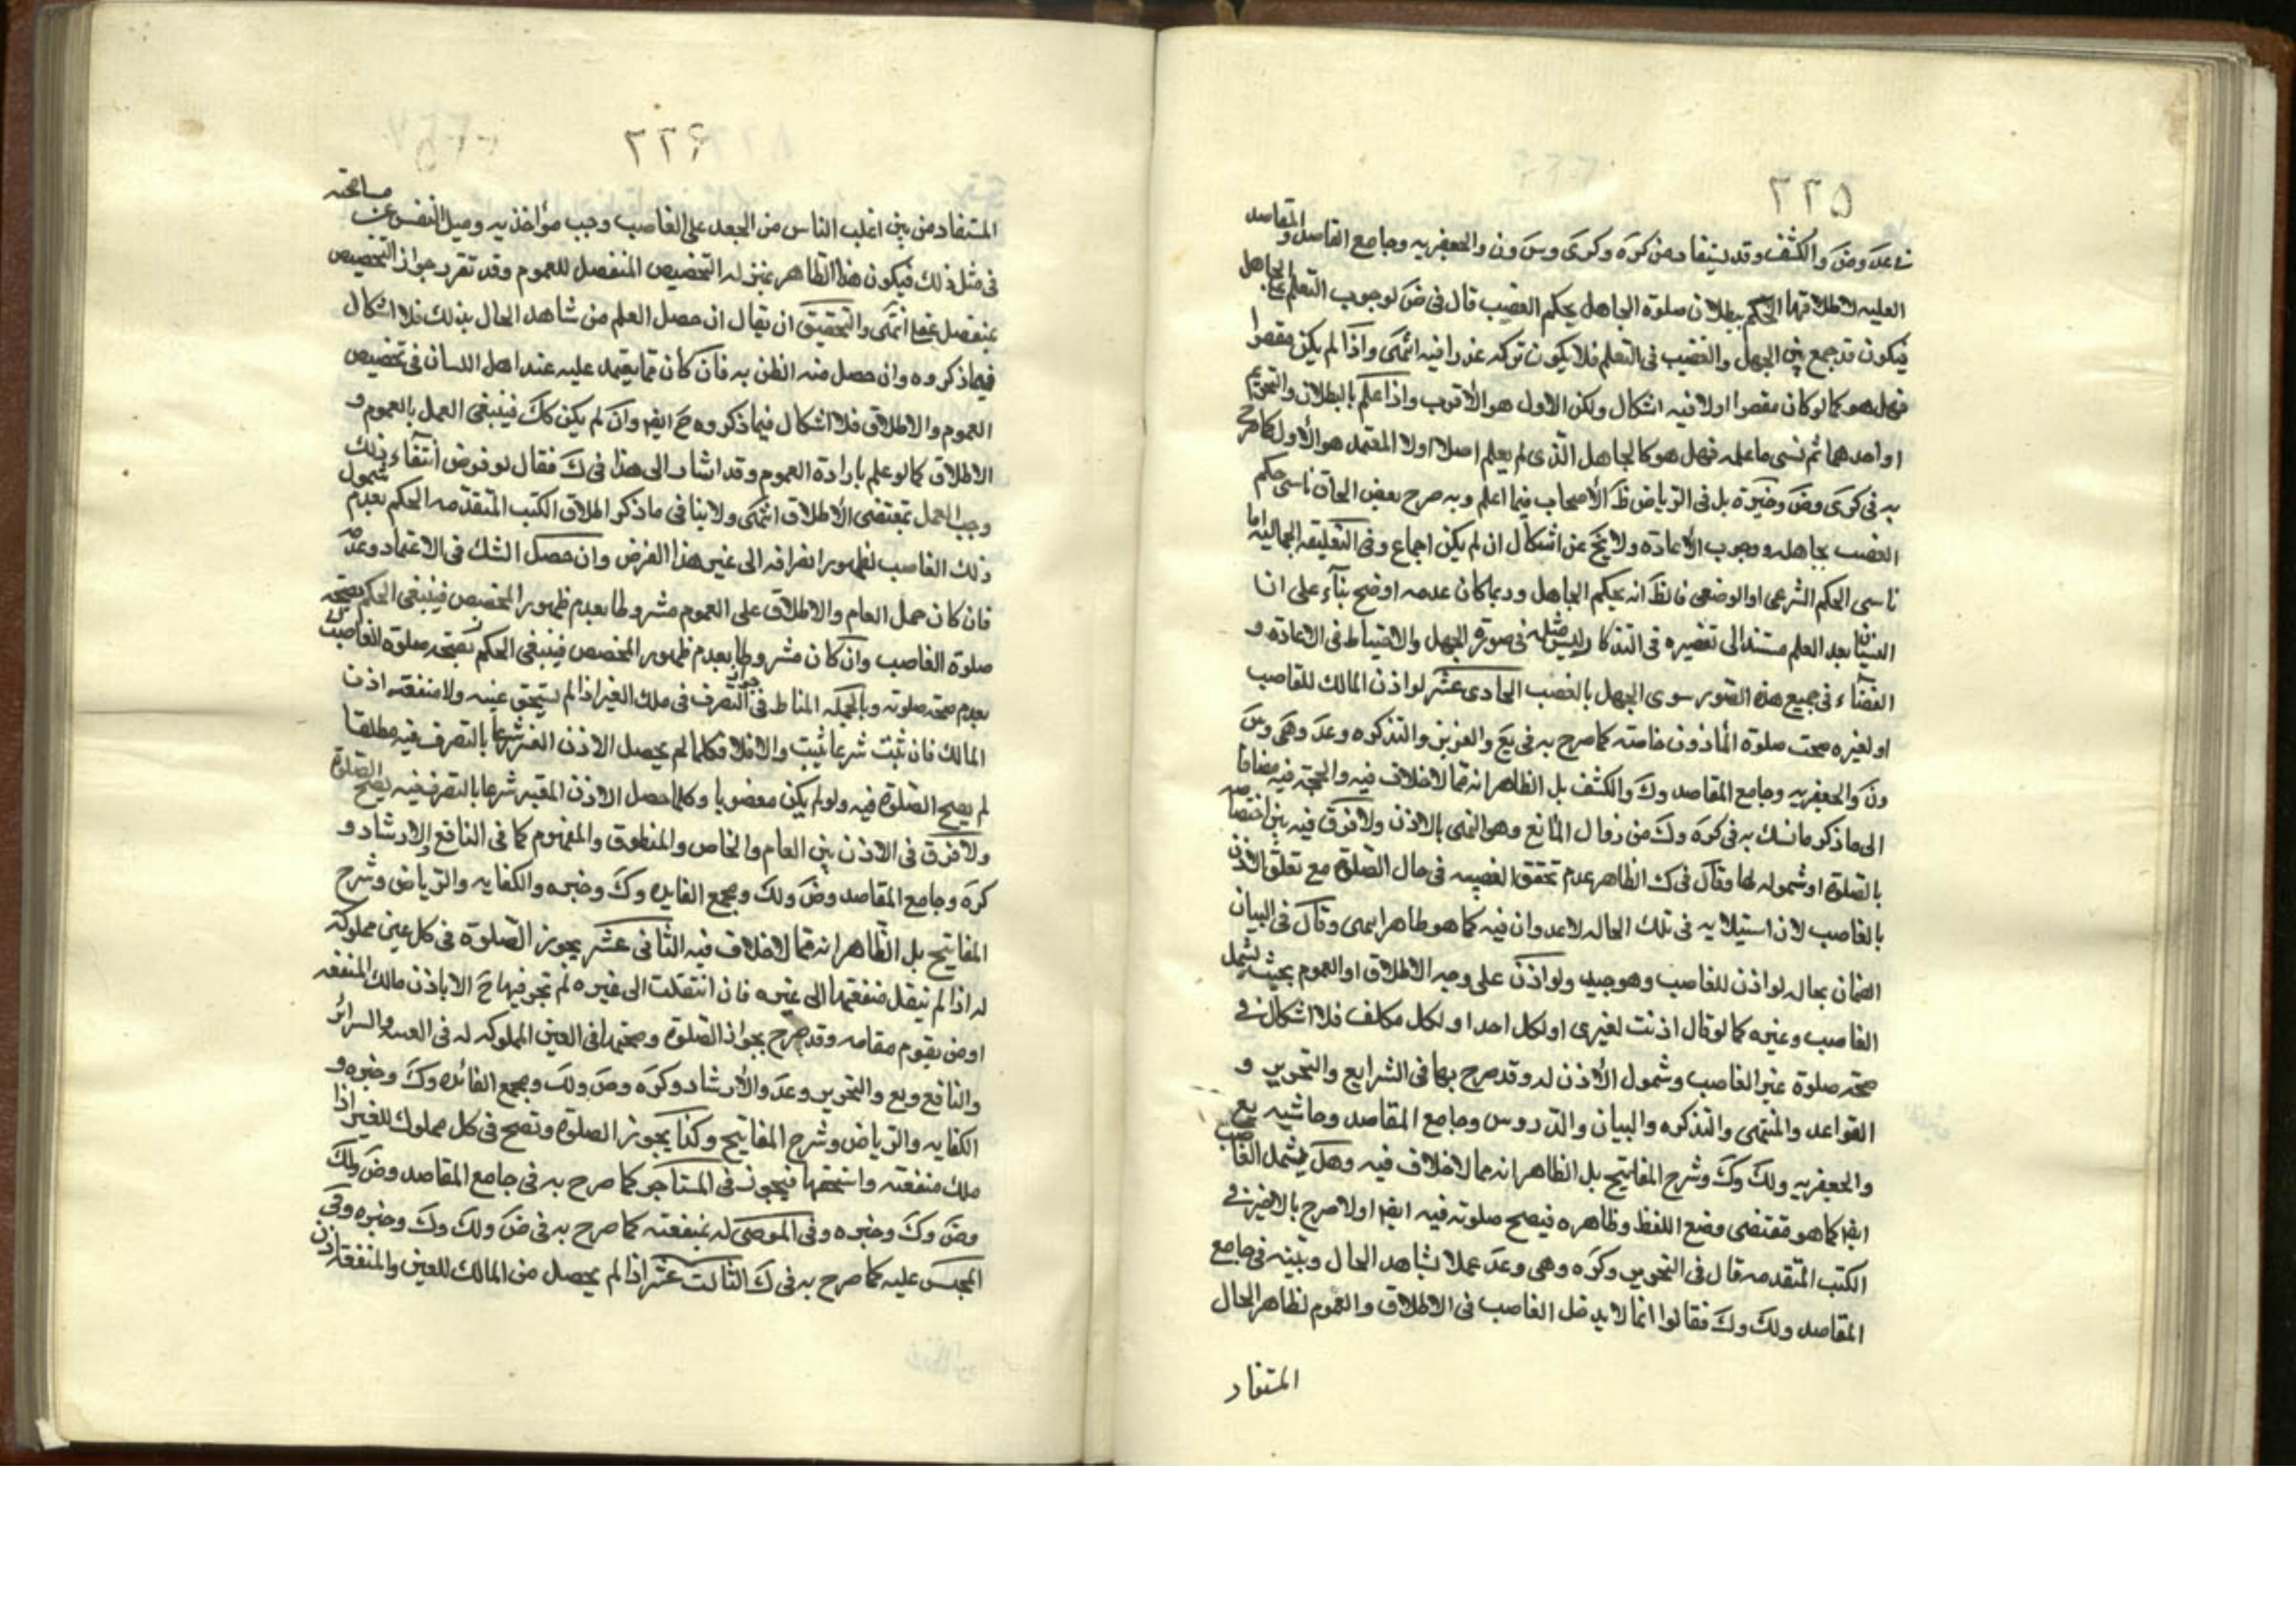 ٢٢٥
في عد وض والكشف وقد يستفاد من كره وكرى وس ون والجعفريه وجامع المقاصد و
العليه لاطلاقها الحكم ببطلان صلوة الجاهل بحكم الغصب قال في ض لوجوب التعلم على الجاهل
فيكون قد جمع بين الجهل والتعلم فلا يكون تركه عذرا فيه انتهى واذا لم يكن مقصرا
فهل هو كما لو كان مقصرا اولا فيه اشكال ولكن الاول هو الأقرب واذا علم بالبطلان والتحريم
او احدهما ثم نسى ما علمه فهل هو كالجاهل الذى لم يعلم اصلا اولا المعتمد هو الأول كما صرح
به في كرى وض وخيرة بل في الرياض ظ الأصحاب فيما اعلم وبه صرح بعض الحاق ناسى حكم
الغصب بجاهله ووجوب الأعادة ولا يخ عن اشكال ان لم يكن اجماع وفي التعليقة الجمالية اما
ناسى الحكم الشرعى او الوضعى فالظ انه بحكم الجاهل وربما كان عدمه اوضح بناء على ان
النسيان بعد العلم مستند الى تقصيره في التذكار وليس مثله في صورة الجهل والاحتياط في الاعادة و
القضاء في جميع هذه الصور سوى الجهل بالغصب الحادى عشر لو اذن المالك للغاصب
او لغيره صحت صلوة المأذون خاصته كما صرح به في يع والعزيز والتذكره وعد وهى وس
ون والجعفريه وجامع المقاصد وك والكشف بل الظاهر انه مما لا خلاف فيه والحجة فيه مضافا
الى ما ذكر ما تمسك به في كره وك من زوال المانع وهو النهى بالاذن ولا فرق فيه بين اختصاصه
بالصلوة او شموله لها وقال في ك الظاهر عدم تحقق الغصبيه في حال الصلوة مع تعلق الاذن
بالغاصب لان استيلائه في تلك الحاله لا عدوان فيه كما هو ظاهر انتهى وقال في البيان
الضمان بحاله لو اذن للغاصب وهو جيد ولو اذن على وجه الاطلاق او العموم بحيث يشمل
الغاصب وغيره كما لو قال اذنت لغيرى او لكل احد او لكل مكلف فلا اشكال في
صحة صلوة غير الغاصب وشمول الأذن له وقد صرح بها في الشرايع والتحرير و
القواعد والمنتهى والتذكره والبيان والدروس وجامع المقاصد وحاشيه يع
والجعفريه ولك وك وشرح المفاتيح بل الظاهر انه مما لا خلاف فيه وهل يشمل الغاصب
ايض كما هو مقتضى وضع اللفظ وظاهره فيصح صلوته فيه ايض اولا صرح بالاخير في
الكتب المتقدمه قال في التحرير وكره وهى وعد عملا بشاهد الحال وبينه في جامع
المقاصد ولك وك فقالوا انما لا يدخل الغاصب في الاطلاق والعموم لظاهر الحال
المستفاد
٢٢۶
المستفاد من بين اغلب الناس من الحقد على الغاصب وحب مؤاخذيه وميل النفس عن مسامحته
في مثل ذلك فيكون هذا الظاهر بمنزله التخصيص المنفصل للعموم وقد تقرر جواز التخصيص
بمنفصل عقلا انتهى والتحقيق ان يقال ان حصل العلم من شاهد الحال بذلك فلا اشكال
فيما ذكروه وان حصل منه الظن به فان كان مما يعتمد عليه عند اهل اللسان في تخصيص
العموم والاطلاق فلا اشكال فيما ذكروه ح ايض وان لم يكن كك فينبغى العمل بالعموم و
الاطلاق كما لو علم بارادة العموم وقد اشار الى هذا في ك فقال لو فرض انتفاء ذلك
وجب العمل بمقتضى الأطلاق انتهى ولا ينافى ما ذكر اطلاق الكتب المتقدمه الحكم بعدم شمول
ذلك الغاصب لظهور انصرافه الى غير هذا الفرض وان حصل الشك في الاعتماد وعدمه
فان كان حمل العام والاطلاق على العموم مشروطا بعدم ظهور المخصص فينبغى الحكم بصحة
صلوة الغاصب وان كان مشروطا بعدم ظهور المخصص فينبغى الحكم بصحة صلوة الغاصب
بعدم صحة صلوته وبالجملة المناط في جواز التصرف في ملك الغير اذا لم يستحق عينه ولا منفعته اذن
المالك فان ثبت شرعا ثبت والا فلا فكلما لم يحصل الاذن المعتبر شرعا بالتصرف فيه مطلقا
لم يصح الصلوة فيه ولو لم يكن مغصوبا وكلما حصل الاذن المعتبر شرعا بالتصرف فيه يصح الصلوة
ولا فرق في الاذن بين العام والخاص والمنطوق والمفهوم كما في النافع والارشاد و
كره وجامع المقاصد وض ولك ومجمع الفايده وك وخيره والكفايه والرياض وشرح
المفاتيح بل الظاهر انه مما لا خلاف فيه الثانى عشر يجوز الصلوة في كل عين مملوكة
له اذا لم ينقل منفعتها الى غيره فان انتقلت الى غيره لم تجز فيها ح الا باذن مالك المنفعه
او من يقوم مقامه وقد صرح بجواز الصلوة وصحتها في العين المملوكه له في الغنيه والسرائر
والنافع ويع والتحرير وعد والأرشاد وكره وض ولك ومجمع الفائده وك وخيره و
الكفايه والرياض وشرح المفاتيح وكذا يجوز الصلوة وتصح في كل مملوك للغير اذا
ملك منفعته واستحقها فيجوز في المستأجر كما صرح به في جامع المقاصد وض ولك
وض وك وخيره وفي الموصى له بمنفعته كما صرح به في ض ولك وك وخيره وفي
المحبس عليه كما صرح به في ك الثالث عشر اذا لم يحصل من المالك للعين والمنفعة اذن